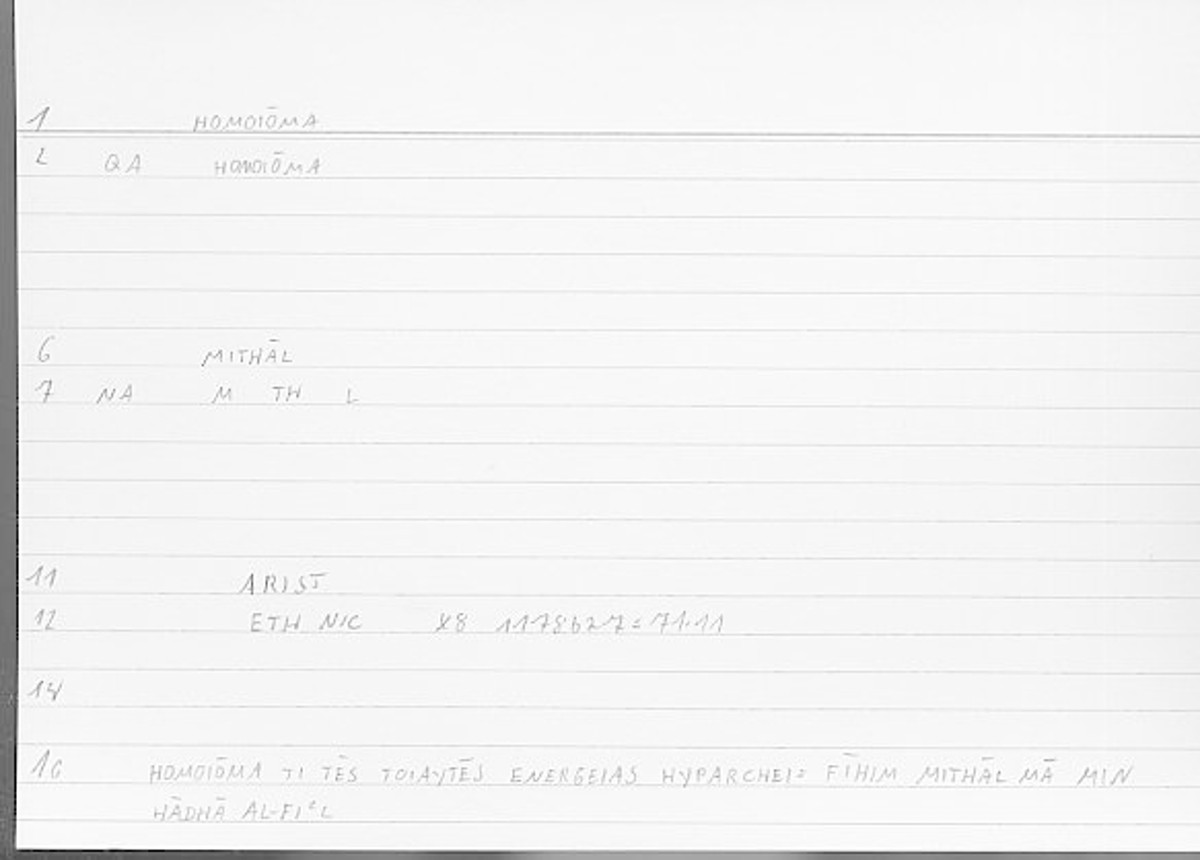 1 HOMOIŌMA
2 QA HOMOIŌMA
6 MITHĀL
7 NA M TH L
11 ARIST
12 ETH NIC X8 1178b27=71.11
14
16 HOMOIŌMA TI TĒS TOIAYTĒS ENERGEIAS HYPARCHEI= FĪHIM MITHĀL MĀ MIN
HĀDHĀ AL-FIᶜL